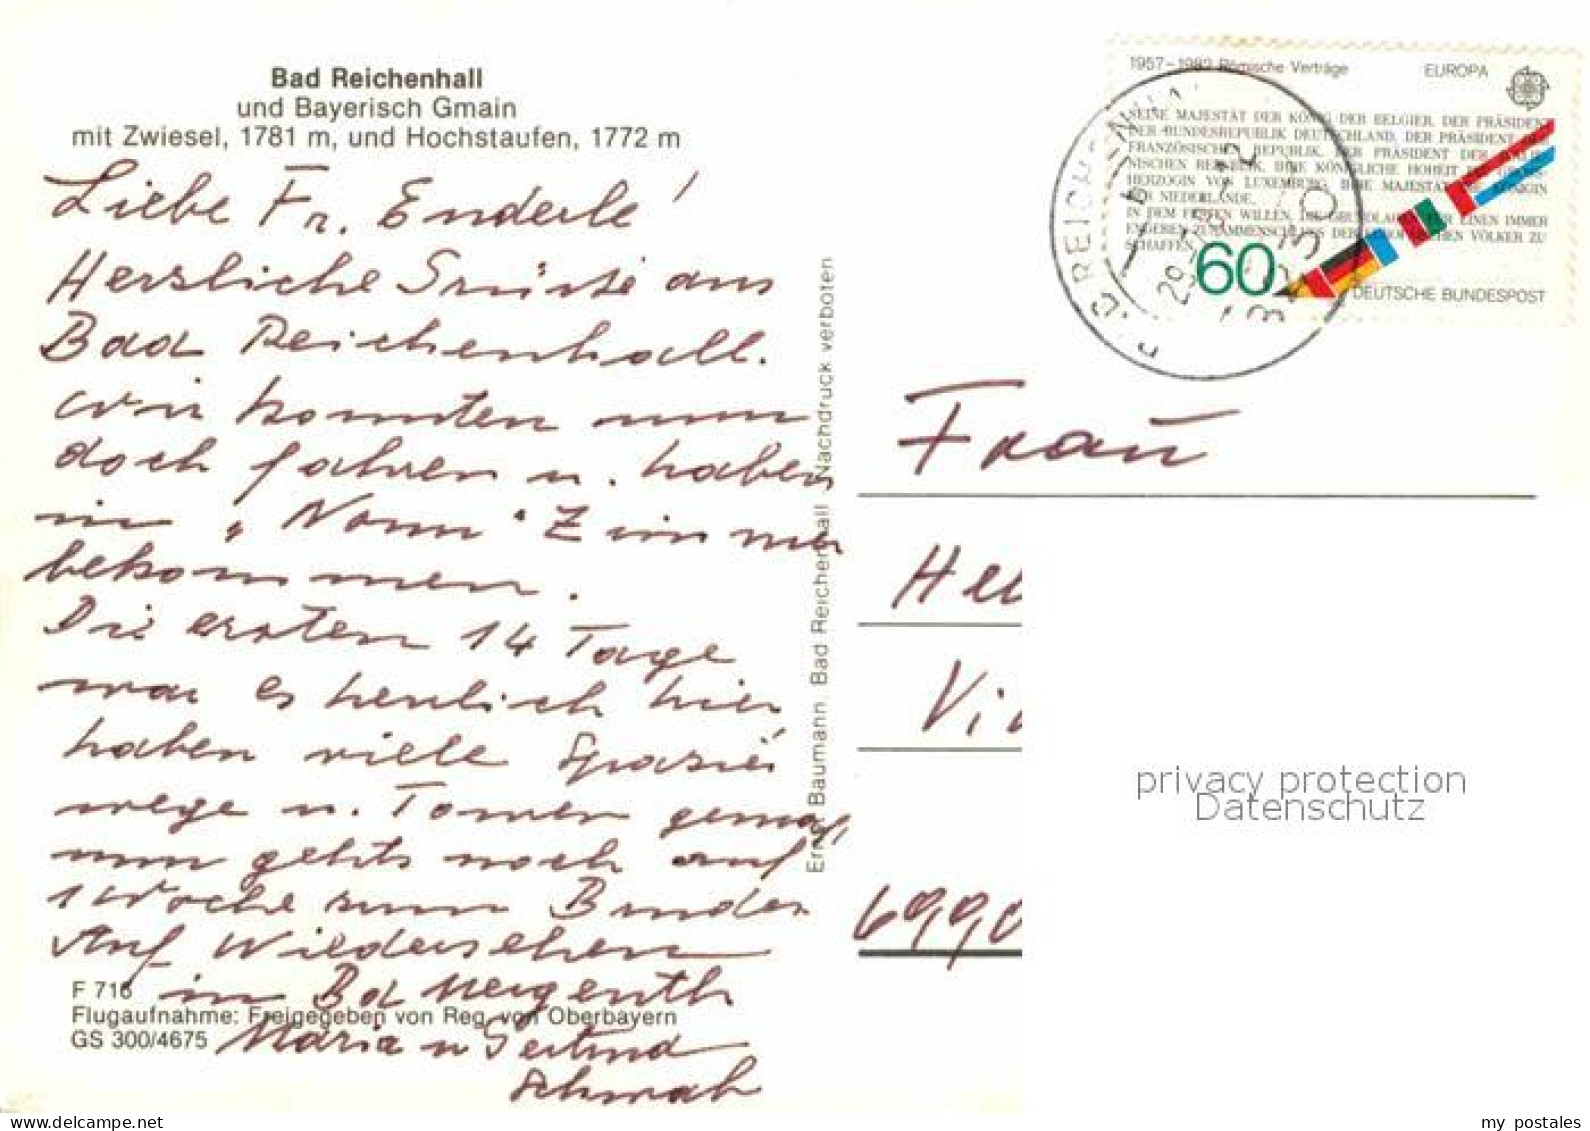 Bad Reichenhall
und Bayerisch Gmain
mit Zwiesel, 1781 m, und Hochstaufen, 1772 m
Liebe Fr. Enderle!
Herzliche Grüße aus
Bad Reichenhall.
Wir konnten nun
doch fahren u. haben
in "Nonn" Zimmer
bekommen.
Die ersten 14 Tage
war es herrlich hier
haben viele Spazier
wege u. Touren gemacht
nun gehts noch auf
1 Woche zum Bruder
Auf Wiedersehen
in Bad Mergenth
Maria u Gertrud
Schwab
F 716
Flugaufnahme: Freigegeben von Reg. von Oberbayern
GS 300/4675
Ernst Baumann Bad Reichenhall Nachdruck verboten
1957–1982 Römische Verträge EUROPA
SEINE MAJESTÄT DER KÖNIG DER BELGIER, DER PRÄSIDENT
DER BUNDESREPUBLIK DEUTSCHLAND, DER PRÄSIDENT DER
FRANZÖSISCHEN REPUBLIK, DER PRÄSIDENT DER ITALIE-
NISCHEN REPUBLIK, IHRE KÖNIGLICHE HOHEIT DIE GROSS-
HERZOGIN VON LUXEMBURG, IHRE MAJESTÄT DIE KÖNIGIN
DER NIEDERLANDE,
IN DEM FESTEN WILLEN, DIE GRUNDLAGEN FÜR EINEN IMMER
ENGEREN ZUSAMMENSCHLUSS DER EUROPÄISCHEN VÖLKER ZU
SCHAFFEN,
60
DEUTSCHE BUNDESPOST
Frau
Hel
Vi
6990
privacy protection
Datenschutz
my postales